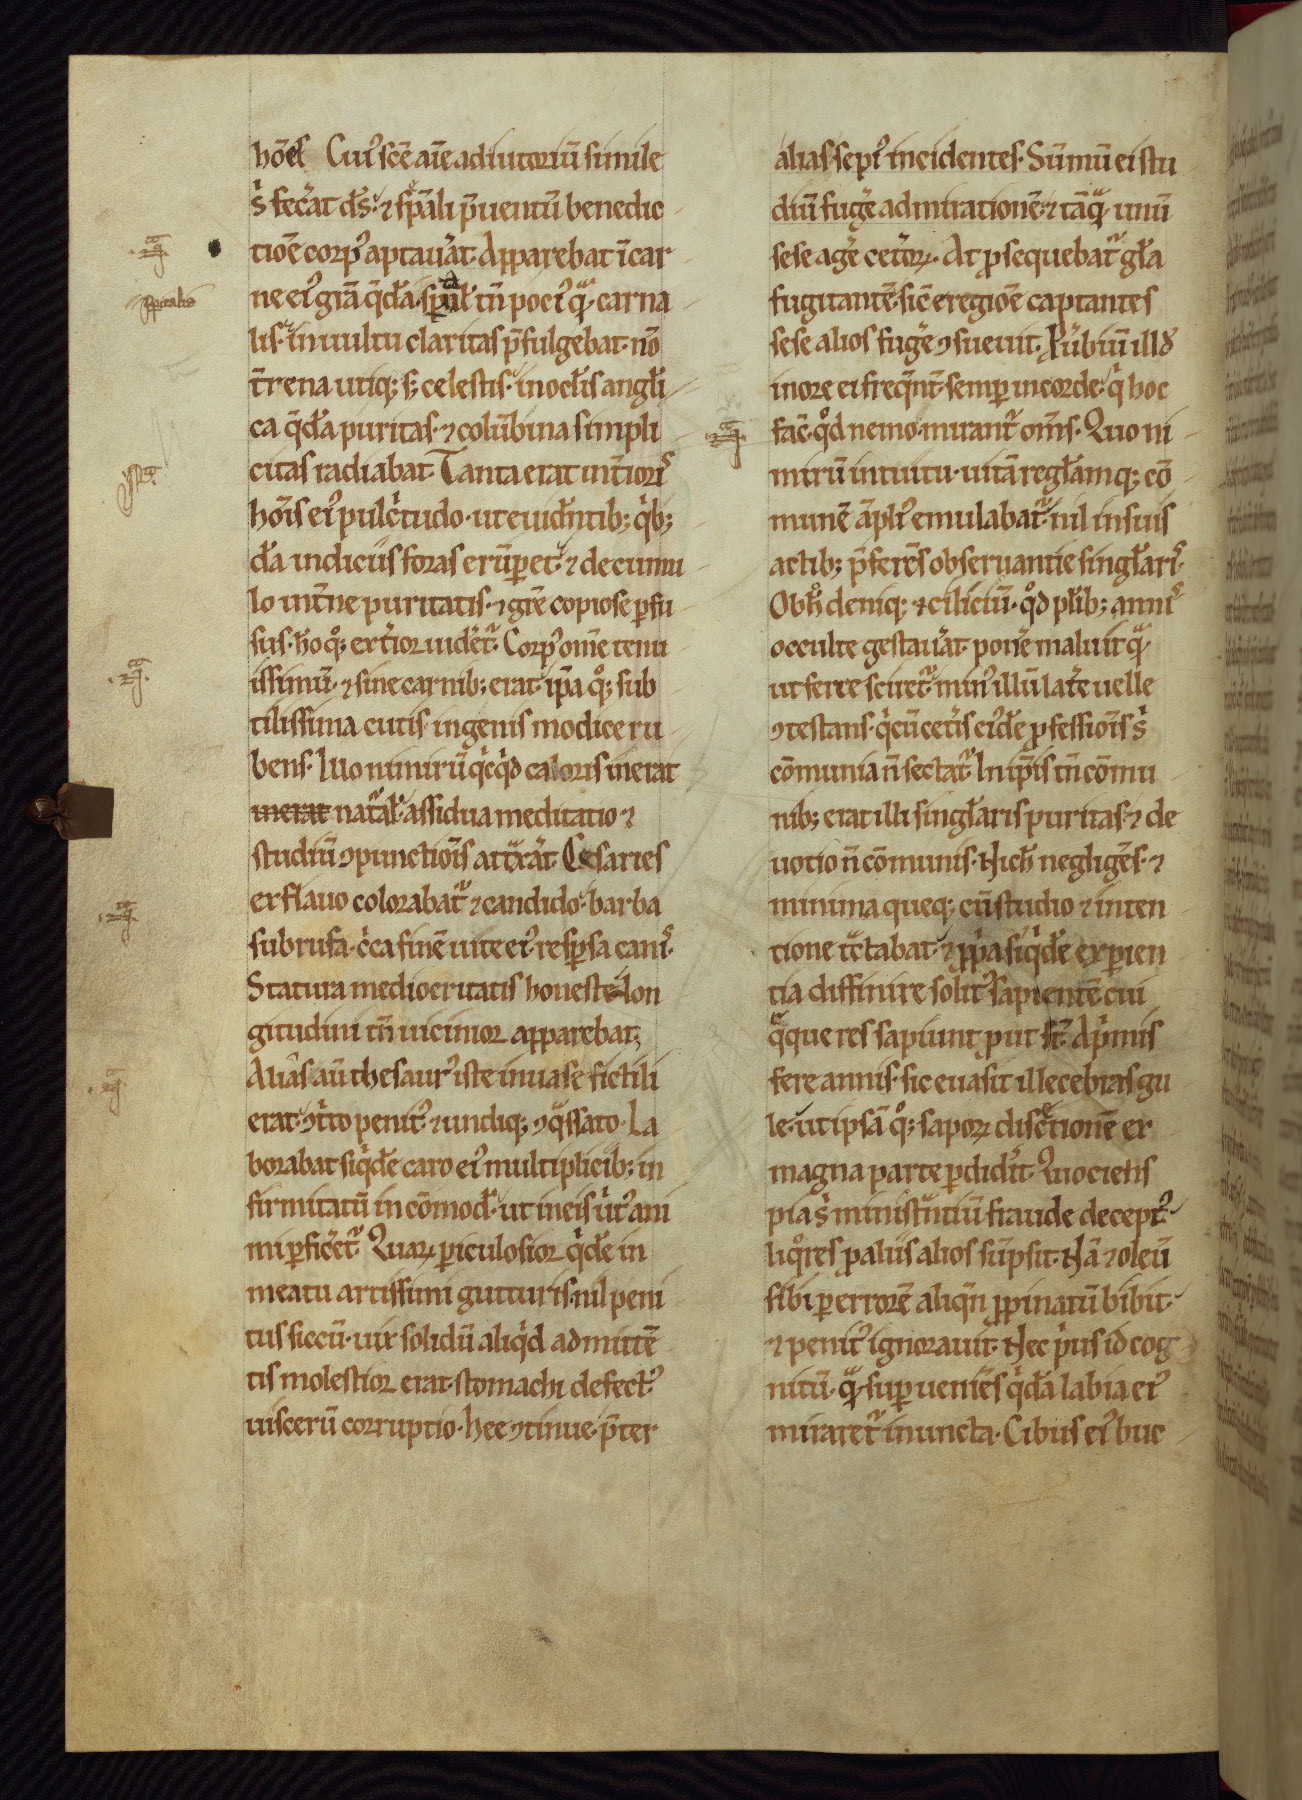 hōēs Cui᷒ sc̄ē aīe adiutoriū simile
ṡ fec̄at dn̄s. ⁊ sp̄ali p̄uentū benedic
tiōe corp᷒ aptauāt. Apparebat ī car
ne ei᷒ gr̄a q̄dā. sp̄ual tn̄ poci᷒ qᷓ carna
lis. in uultu claritas p̄fulgebat. nō
t̄rena utiq; s; celestis. in ocl̄is angl̄i
ca q̄dā puritas. ⁊ colūbina simpli
citas radiabat. Tanta erat int̄iori᷒
hōīs ei᷒ pulc̄tudo. ut euid̄ntib; qⁱb;
dā indiciis foras erūperet. ⁊ de cumu
lo int̄ne puritatis. ⁊ gr̄e copiose ꝑfu
sus. hō qͦ; ext̄ior uidēt᷑. Corp᷒ om̄e tenu
issimū. ⁊ sine carnib; erat. ip̄a qͦ; sub
tilissima cutis. in genis modice ru
bens. Quo nimirū qⁱcqⁱd caloris inerat
inerat nat᷑al. assidua meditatio ⁊
studiū ꝯpunctiōis att᷑xāt. Cesaries
ex flauo colorabat᷑ ⁊ candido. barba
subrufa. cⁱca finē uite ei᷒. resꝑsa cani᷒.
Statura mediocritatis honeste. lon
gitudini tn̄ uicinior apparebat;
Aliās aū thesaur᷒ iste in uase fictili
erat. ꝯtⁱto penit᷒ ⁊ undiq; ꝯqᷓssato. La
borabat siqⁱdē caro ei᷒ multiplicib; in
firmitatū incōmod. ut in eis uⁱt᷒ ani
mi ꝑfic̄et᷑. Quaꝝ periculosior qⁱdē in
meatu artissimi gutturis. nil peni
tus siccū. uix solidū aliqⁱd admittē
tis molestior erat. stomachi defect᷒
uiscerū corruptio. hec ꝯtinue. p̄ter
alias sepi᷒ incidentes. Sūmū ei stu
diū fuḡe admirationē. ⁊ tāqᷓ unū
sese aḡe cet̄oꝝ. At ꝓsequebat᷑ gl̄a
fugitantē. sic̄ e regiōe captantes
sese alios fuḡe ꝯsueuit. Ꝓūbiū illd̄
in ore ei freq̄nt. semꝑ in corde. qⁱ hoc
fac̄. qͦd nemo. mirant᷑ om̄s. Quo ni
mirū intuitu. uitā regl̄amq; cō
munē āpli᷒ emulabat᷑. nil in suis
actib; p̄ferēs obseruantie singl̄ari᷒.
Ob h̄ deniq; ⁊ ciliciū. qͦd pl̄ib; anni᷒
occulte gestauāt. ponē maluit qᷓ
ut ferre sciret᷑. min᷒ illū latēre uelle
ꝯtestans. qⁱ cū cet̄is ei᷒dē ꝓfessiōis ṡ
cōmunia n̄ sectat᷑. In ip̄is tn̄ cōmu
nib; erat illi singl̄aris puritas. ⁊ de
uotio n̄ cōmunis. Nich̄ negligēs. ⁊
minima queq; cū studio ⁊ inten
tione t᷑ctabat. ⁊ ꝓpⁱa siqⁱdē exꝑien
tia diffinire solit᷒. sapientē cui
qᷓque res sapiunt ꝓut st̄. A pⁱmis
fere annis. sic euasit illecebras gu
le. ut ipsā qͦ; saporꝝ disc᷑tionē ex
magna parte ꝑdidⁱt. Quociens
pia ṡ minist᷑ntiū fraude decept᷒
liqͦres ꝓ aliis alios sūpsit. Nā ⁊ oleū
sibi ꝑ errorē aliqn̄ ꝓpinatū bibit.
⁊ penit᷒ ignorauit. Nec pⁱus id cog
nitū. qᷓ suꝑueniēs qⁱdā labia ei᷒
miraret᷑ inuncta. Cibus ei᷒ buc